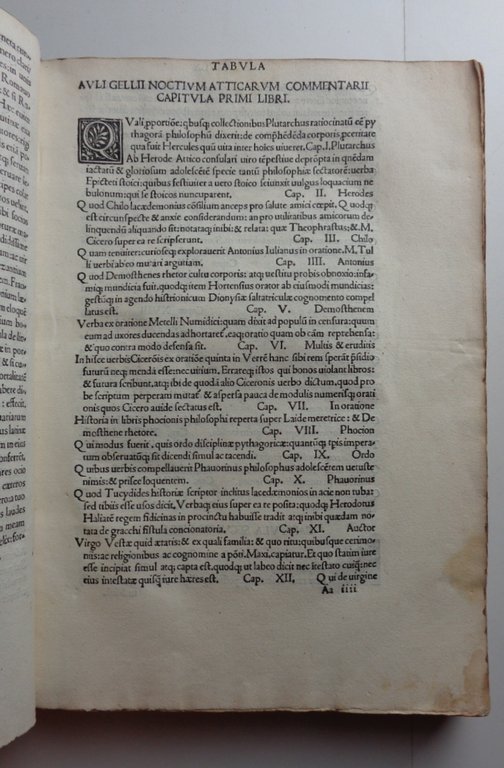 TABVLA
AVLI GELLII NOCTIVM ATTICARVM COMMENTARII
CAPITVLA PRIMI LIBRI.
QVali ꝓportiõe: qbusq; collectionibus Plutarchus ratiocinatũ eẽ py
thagorã philosophũ dixerit: de cõprehẽdẽda corporis proceritate
qua fuit Hercules quũ uita inter hoĩes uiueret. Cap. I. Plutarchus
Ab Herode Attico consulari uiro tẽpestiue deprõpta in quẽdam
iactatũ & gloriosum adolescẽtẽ specie tantũ philosophiæ sectatorẽ: uerba
Epicteti stoici: quibus festiuiter a uero stoico seiunxit uulgus loquacium ne
bulonum: qui se stoicos nuncuparent. Cap. II. Herodes
Quod Chilo lacædemonius cõsilium anceps pro salute amici cœpit. Quodq;
est circunspecte & anxie considerandum: an pro utilitatibus amicorum de-
linquendũ aliquando sit: notataq; inibi & relata: quæ Theophrastus: & M.
Cicero super ea re scripserunt. Cap. III. Chilo
Quam tenuiter: curioseq; explorauerit Antonius Iulianus in oratione. M. Tul
li uerbi ab eo mutati argutiam. Cap. IIII. Antonius
Quod Demosthenes rhetor cultu corporis: atq; uestitu probis obnoxio: infa-
miq; mundicia fuit. quodq; item Hortensius orator ab eiusmodi mundiciis:
gestuq; in agendo histrionicum Dionysiæ saltatriculæ cognomento compel
latus est. Cap. V. Demosthenem
Verba ex oratione Metelli Numidici: quam dixit ad populũ in censura: quum
eum ad uxores ducendas adhortaret̃. eaq; oratio quam ob cãm reprehensa:
& quo contra modo defensa sit. Cap. VI. Multis & eruditis
In hisce uerbis Cicerõis ex oratiõe quinta in Verrẽ hanc sibi rem spẽrat p̃sidio
futurũ: neq; menda esse: nec uitium. Errateq; istos qui bonos uiolant libros:
& futura scribunt. atq; ibi de quodã alio Ciceronis uerbo dictum, quod pro
be scriptum perperam mutat̃ & aspersa pauca de modulis numerisq; orati
onis quos Cicero auide sectatus est. Cap. VII. In oratione
Historia in libris phocionis philosophi reperta super Laide meretrice: & De
mosthene rhetore. Cap. VIII. Phocion
Qui modus fuerit. quis ordo disciplinæ pythagoricæ: quantũq; tp̃is impera-
tum obseruatũq; sit dicendi simul ac tacendi. Cap. IX. Ordo
Quibus uerbis compellauerit Phauorinus philosophus adolescẽtem uetuste
nimis: & prisce loquentem. Cap. X. Phauorinus
Quod Tucydides historiæ scriptor inclitus lacedæmonios in acie non tubar
sed tibiis esse usos dicit. Verbaq; eius super ea re posita: quodq; Herodotus
Haliatẽ regem fidicinas in procinctu habuisse tradit atq; inibi quædam no-
tata de gracchi fistula concionatoria. Cap. XI. Auctor
Virgo Vestæ quid ætatis: & ex quali familia: & quo ritu: quibusque cerimo-
nis: ac religionibus ac cognomine a põti. Maxi. capiatur. Et quo statim iure
esse incipiat simul atq; capta est. quodq; ut labeo dicit nec ĩtestato cuiq;: nec
eius intestatæ quisq; iure hæres est. Cap. XII. Qui de uirgine
Aa iiii